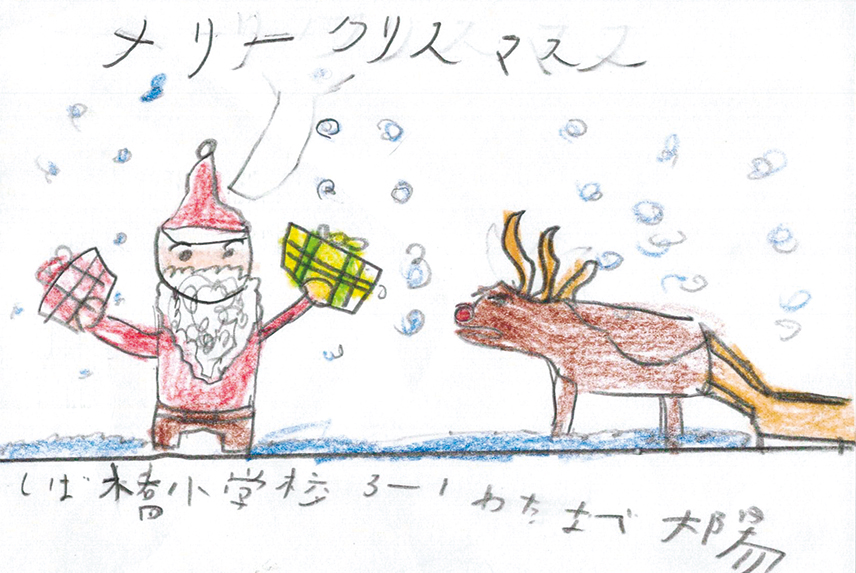 メリークリスマス
しば橋小学校 3-1 わたなべ 太陽